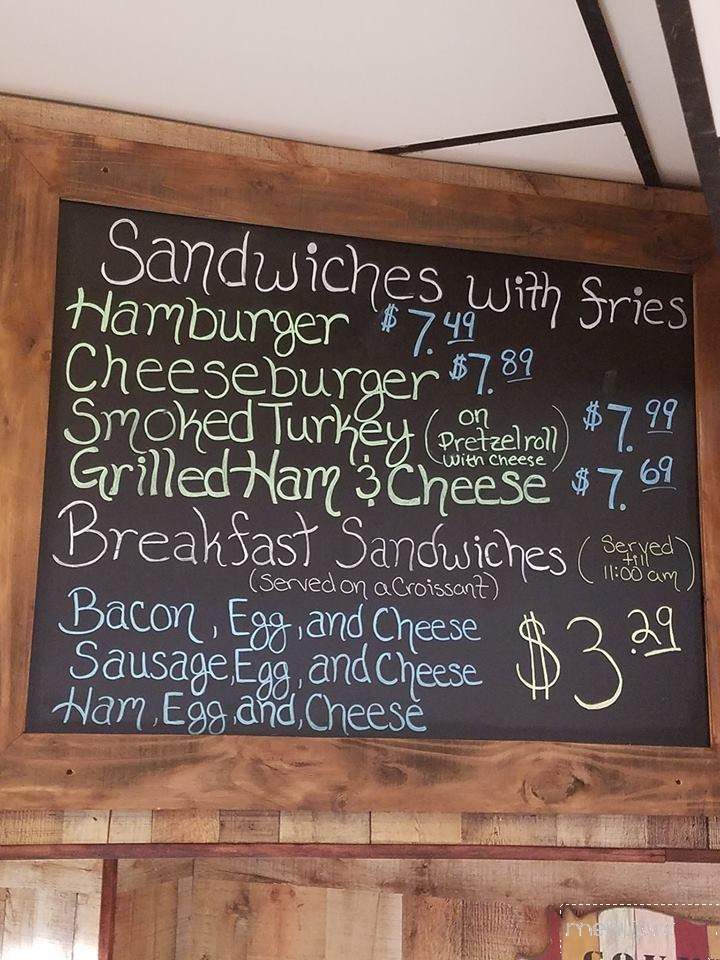 Sandwiches with fries
Hamburger $7.49
Cheeseburger $7.89
Smoked Turkey (on Pretzel roll with Cheese) $7.99
Grilled Ham & Cheese $7.69
Breakfast Sandwiches (Served till 11:00 am)
(Served on a Croissant)
Bacon, Egg, and Cheese
Sausage, Egg, and Cheese $3.29
Ham, Egg, and, Cheese